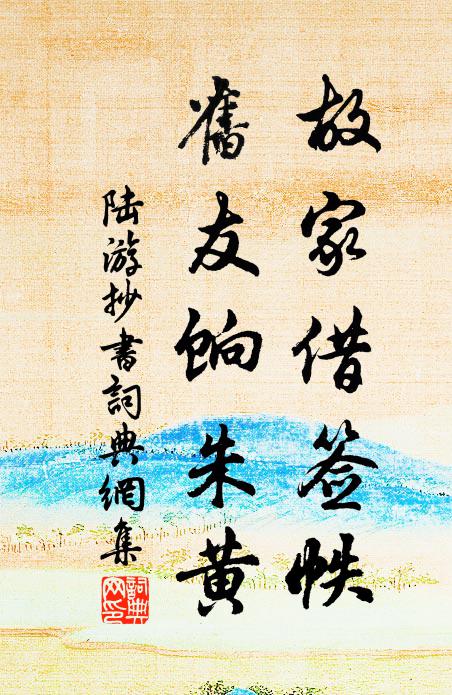 故家借签帙
舊友餉朱黄
陆游抄書詞典網集
詞典